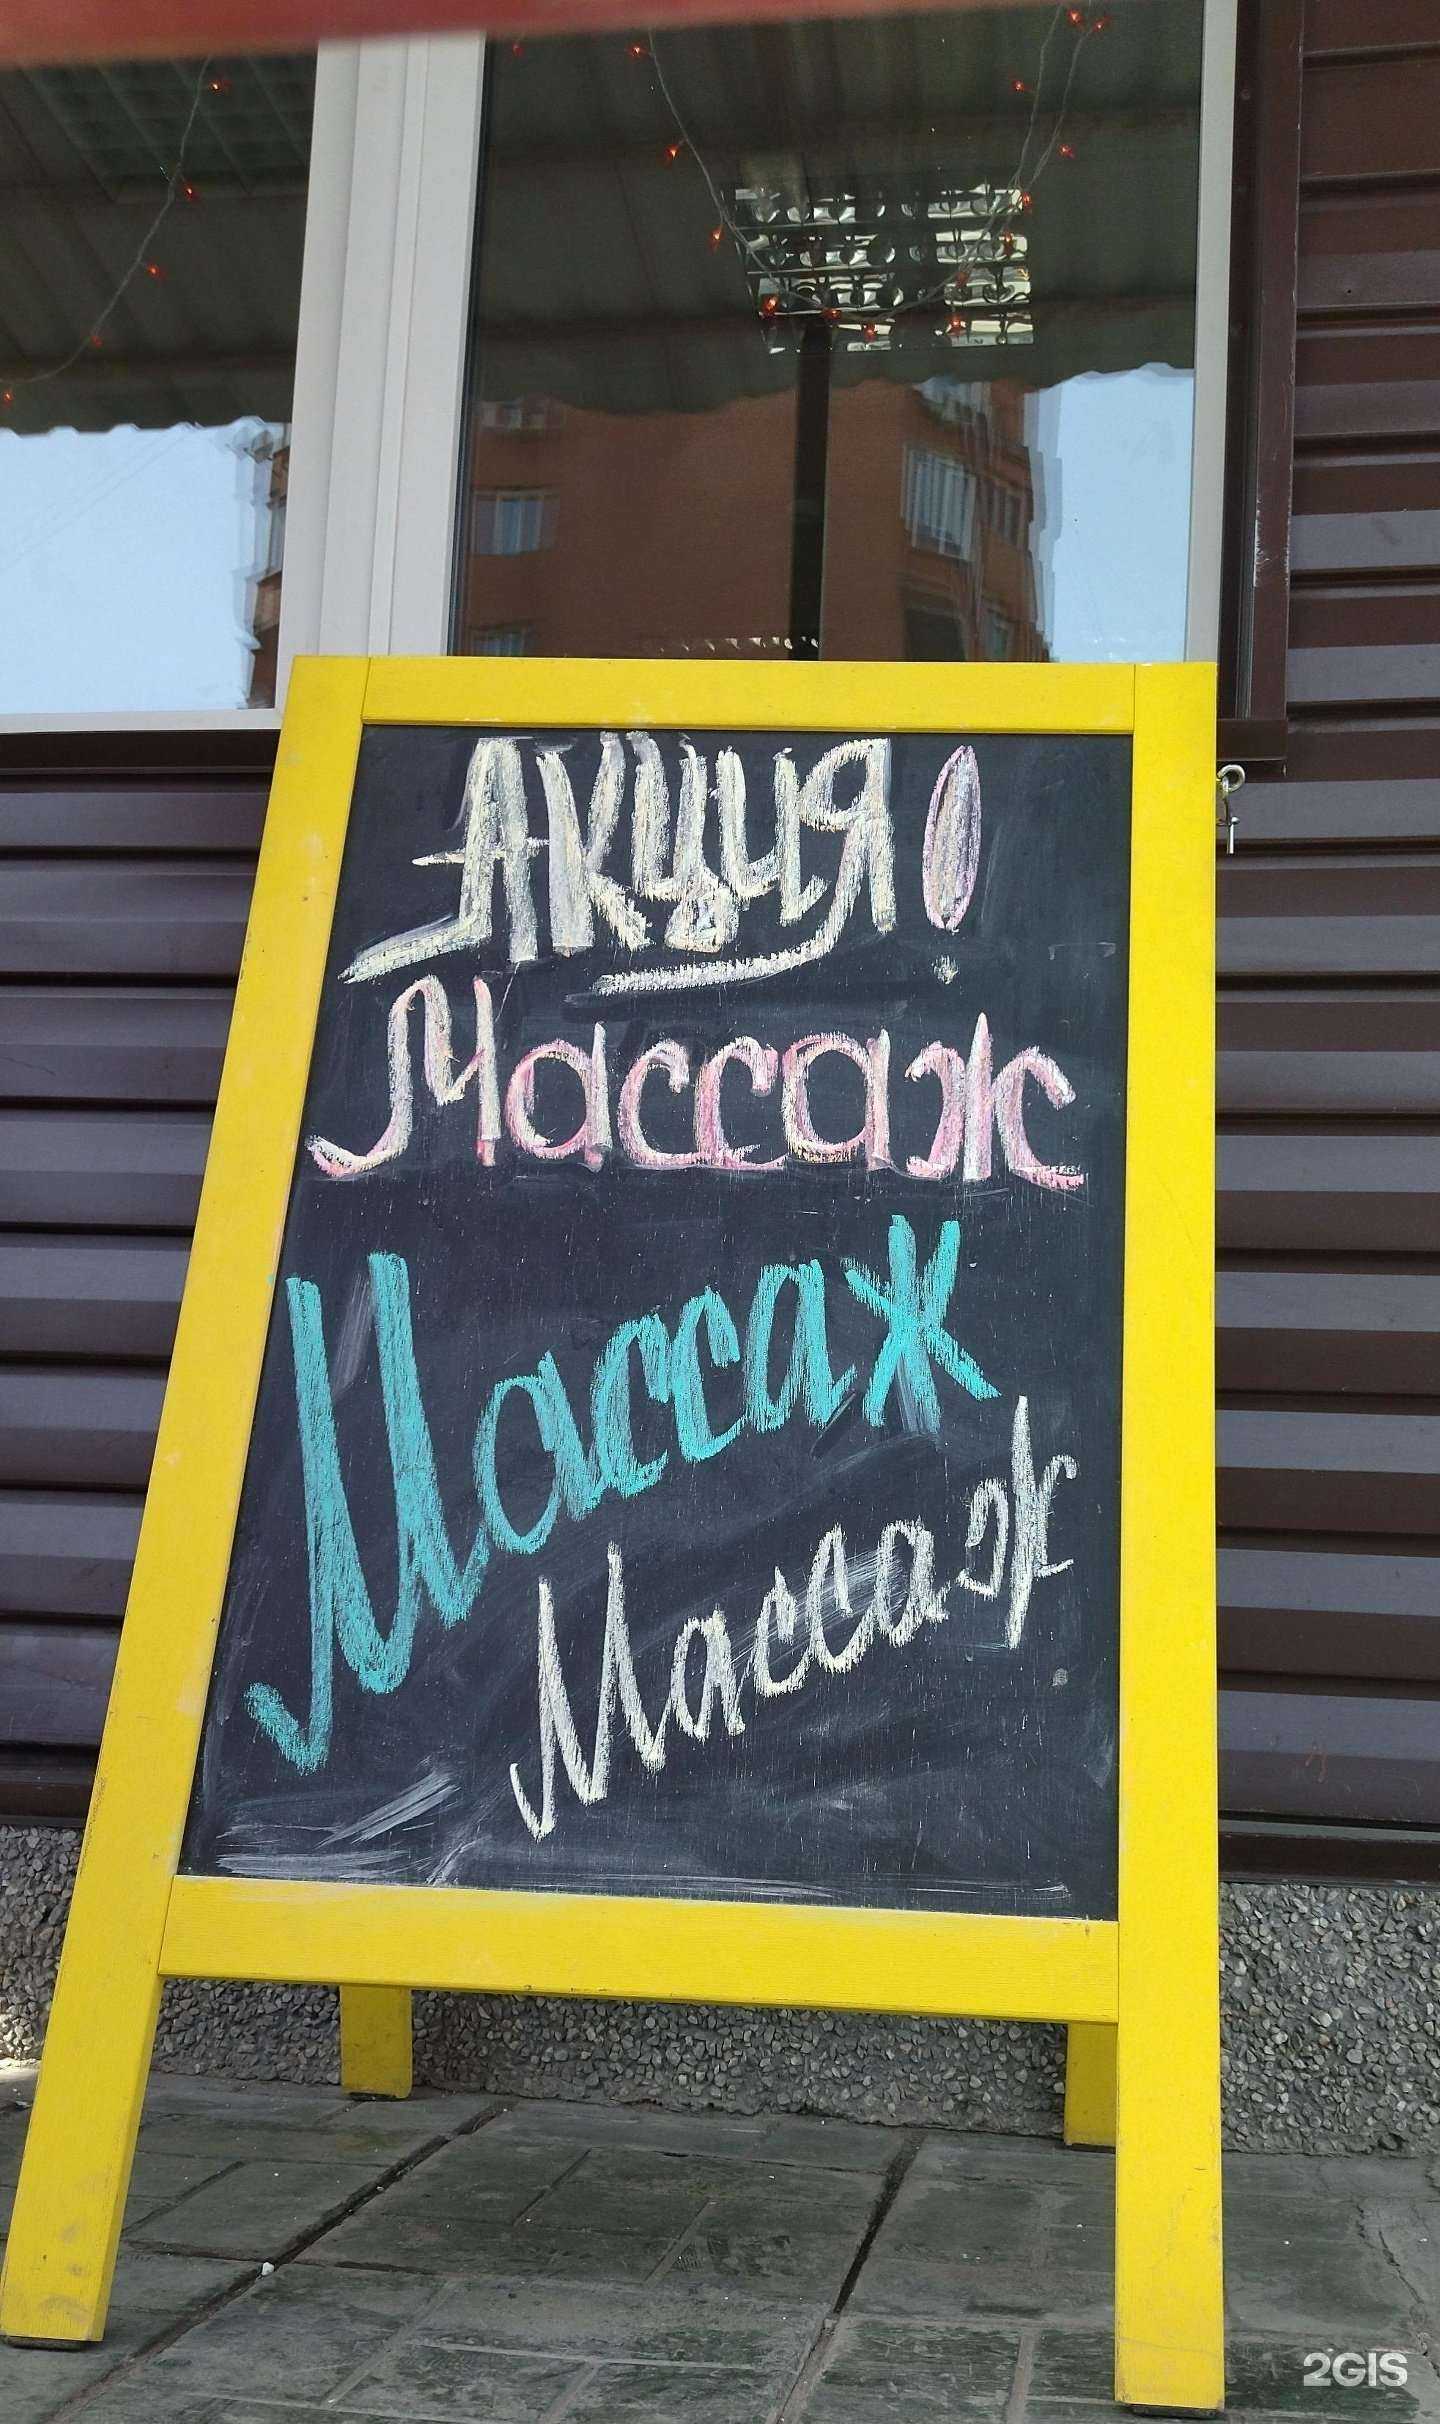 Акция!
Массаж
Массаж
Массаж
2GIS